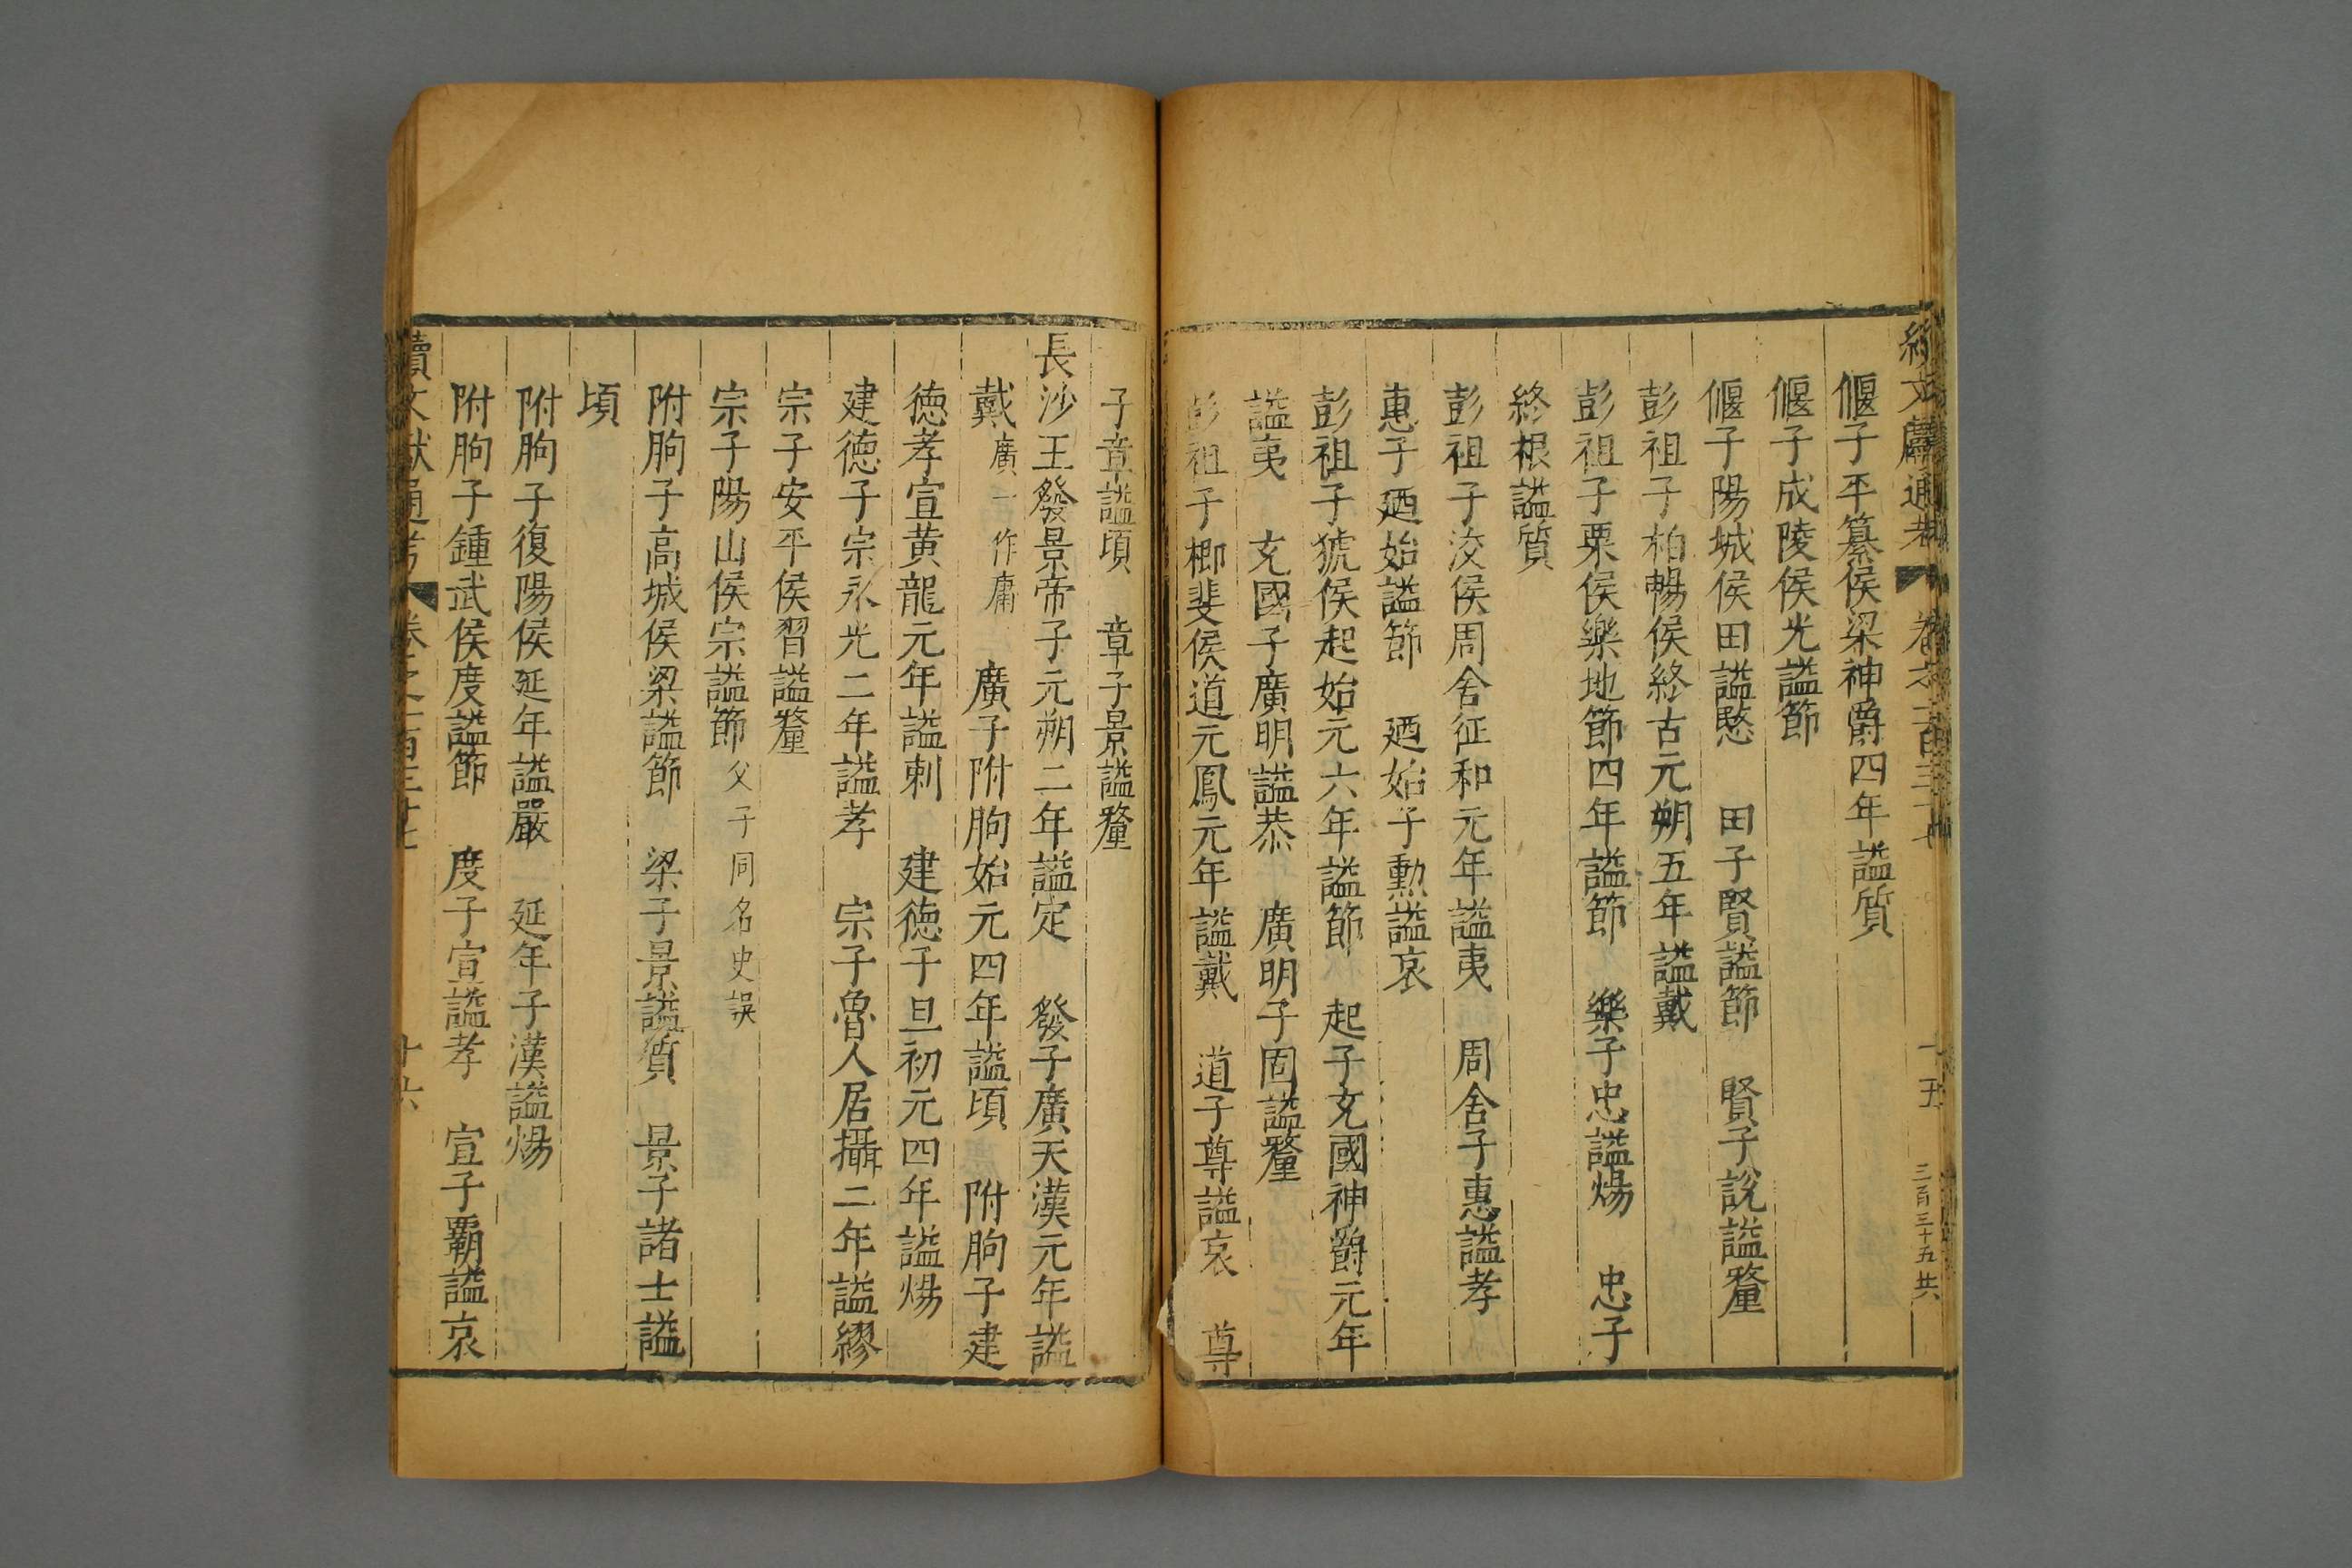 續文獻通考 卷之一百三十七 十五 三百三十五共
偃子平纂侯梁神爵四年謚質
偃子成陵侯光謚節
偃子陽城侯田謚愍 田子賢謚節 賢子說謚釐
彭祖子柏暢侯終古元朔五年謚戴
彭祖子栗侯樂地節四年謚節 樂子忠謚煬 忠子
終根謚質
彭祖子洨侯周舍征和元年謚夷 周舍子惠謚孝
惠子廼始謚節 廼始子勲謚哀
彭祖子猇侯起始元六年謚節 起子充國神爵元年
謚夷 充國子廣明謚恭 廣明子固謚釐
彭祖子楖裴侯道元鳳元年謚戴 道子尊謚哀 尊
子章謚頃 章子景謚釐
長沙王發景帝子元朔二年謚定 發子廣天漢元年謚
戴廣一作庸 廣子附朐始元四年謚頃 附朐子建
德孝宣黄龍元年謚剌 建德子旦初元四年謚煬
建德子宗永光二年謚孝 宗子魯人居攝二年謚繆
宗子安平侯習謚釐
宗子陽山侯宗謚節父子同名史誤
附朐子高城侯梁謚節 梁子景謚質 景子諸士謚
頃
附朐子復陽侯延年謚嚴 延年子漢謚煬
附朐子鍾武侯度謚節 度子宣謚孝 宣子霸謚哀
續文獻通考 卷之一百三十七 十六